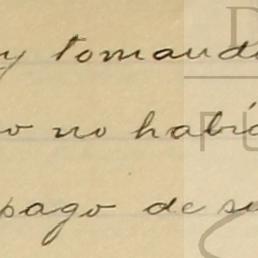 y tomand
o no habí
pago de su